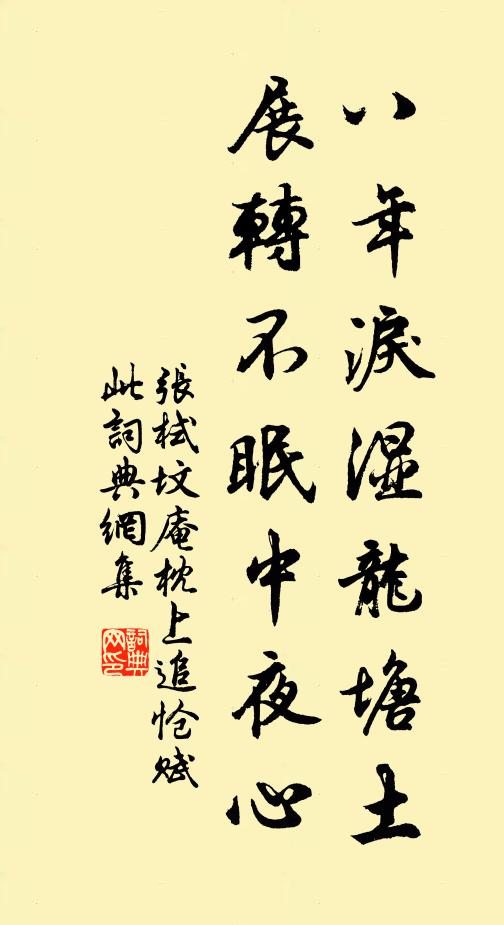 八年淚湿龍塘土
展轉不眠中夜心
張栻坟庵枕上追怆赋
此詞典網集
詞典网印